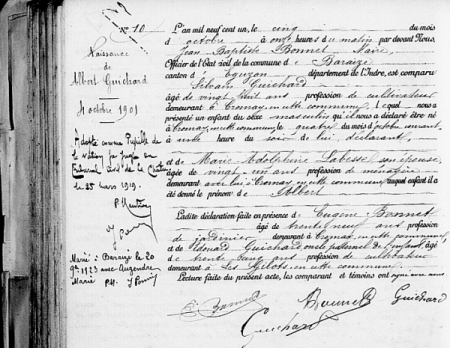 N° 10
Naissance
de
Albert Guichard
4 octobre 1901
Adopté comme Pupille de
la Nation par Jugt du
Tribunal de la Châtre
25 mars 1919.
Marié à Baraize le 20
1923 avec
Marie
L'an mil neuf cent un, le cinq du mois
d'octobre à onze heures du matin par devant Nous,
Jean Baptiste Bonnet Maire
Officier de l'Etat civil de la commune de Baraize
canton d'Eguzon département de l'Indre, est comparu
Silvain Guichard
âgé de vingt huit ans profession de cultivateur
demeurant à Cronay, en cette commune, lequel nous a
présenté un enfant du sexe masculin qu'il nous a déclaré être né
à Cronay, en cette commune, le quatre du mois d'octobre courant,
à une heure du soir de lui, déclarant,
et de Marie Adolphine Labesse, son épouse,
âgée de vingt-un ans profession de ménagère
demeurant avec lui à Cronay en cette commune auquel enfant il a
été donné le prénom de Albert
Ladite déclaration faite en présence de Eugène Bonnet
âgé de trente neuf ans profession
de jardinier demeurant à Cronay en cette commune
et de Edouard Guichard oncle paternel de l'enfant, âgé
de trente cinq ans profession de cultivateur
demeurant à Les Gilots, en cette commune.
Lecture faite du présent acte, les comparant et témoins ont signé avec nous
E. Bonnet
Bonnet
Guichard
Guichard